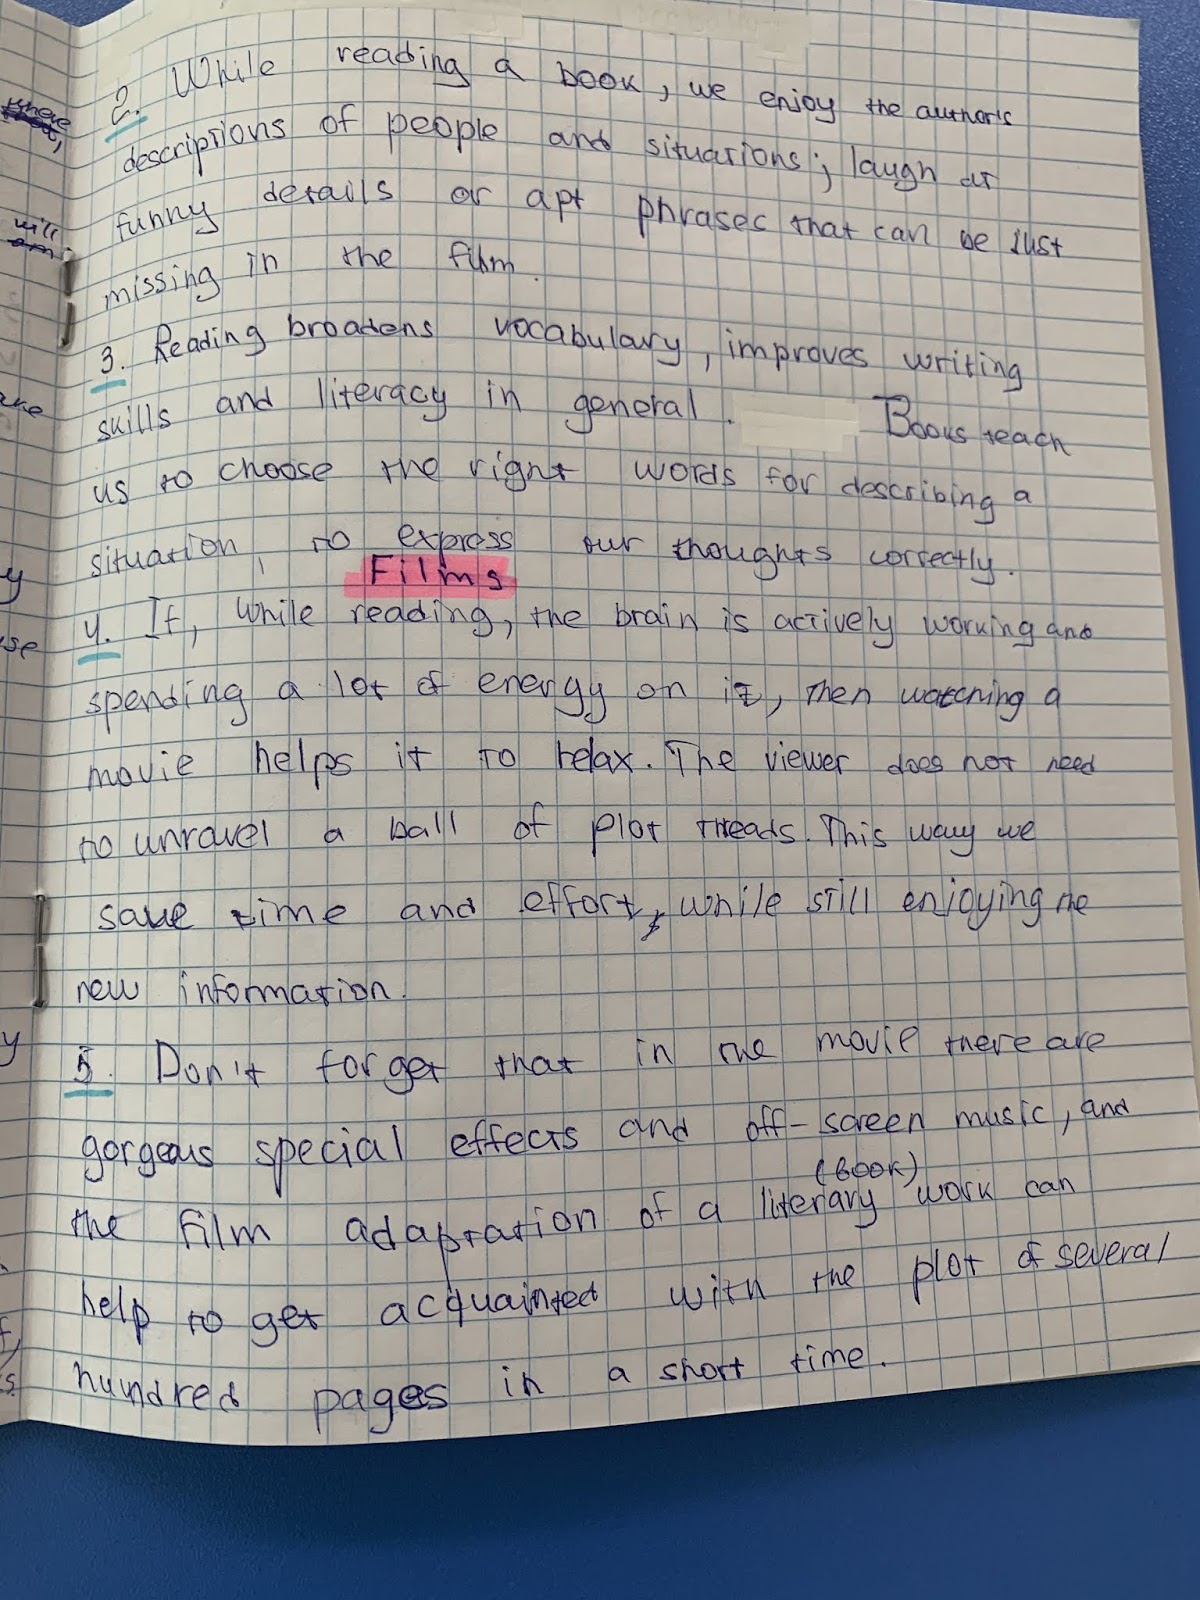 2. While reading a book, we enjoy the author's
descriptions of people and situations; laugh at
funny details or apt phrases that can be just
missing in the film.
3. Reading broadens vocabulary, improves writing
skills and literacy in general. Books teach
us to choose the right words for describing a
situation, to express our thoughts correctly.
Films
4. If, while reading, the brain is actively working and
spending a lot of energy on it, then watching a
movie helps it to relax. The viewer does not need
to unravel a ball of plot threads. This way we
save time and effort, while still enjoying the
new information.
5. Don't forget that in the movie there are
gorgeous special effects and off-screen music, and
(book)
the film adaptation of a literary work can
help to get acquainted with the plot of several
hundred pages in a short time.
will
y
se
y